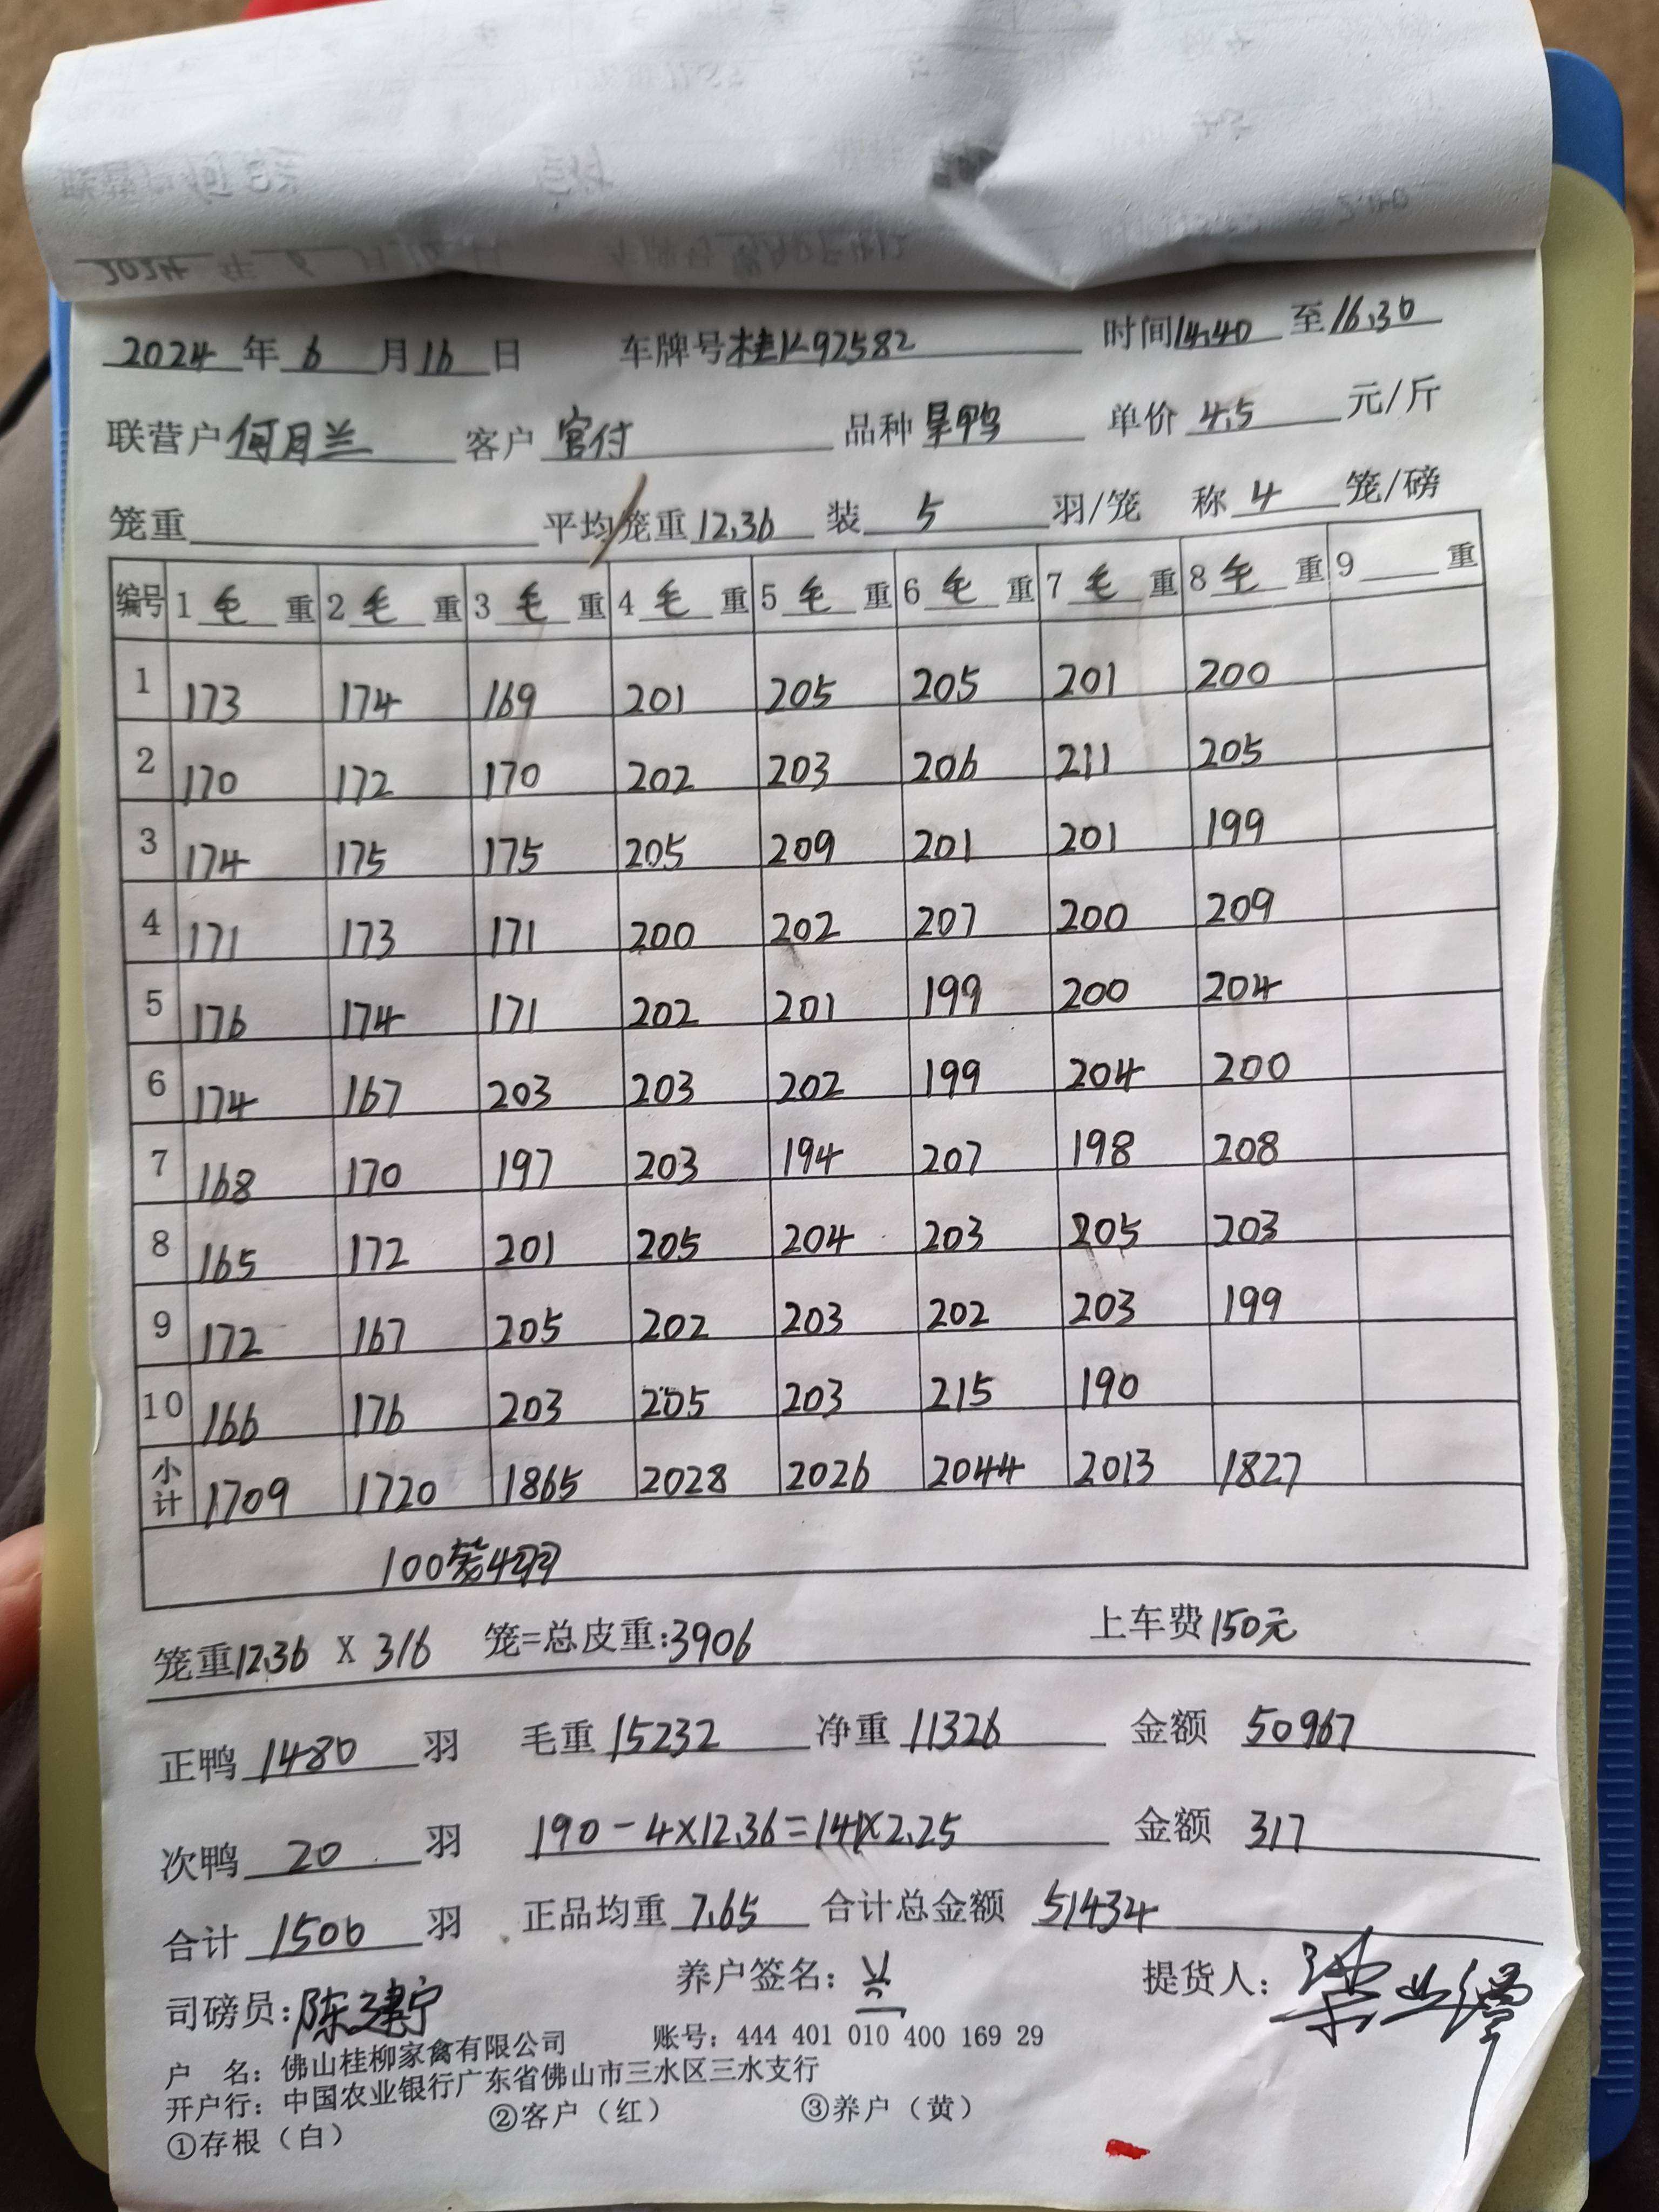 2024 年 6 月 16 日 车牌号 桂K92582 时间 14.40 至 16.30
联营户 何月兰 客户 官付 品种 旱鸭 单价 4.5 元/斤
笼重 平均笼重 12.36 装 5 羽/笼 称 4 笼/磅
编号 1 毛 重 2 毛 重 3 毛 重 4 毛 重 5 毛 重 6 毛 重 7 毛 重 8 毛 重 9 重
1 173 174 169 201 205 205 201 200
2 170 172 170 202 203 206 211 205
3 174 175 175 205 209 201 201 199
4 171 173 171 200 202 207 200 209
5 176 174 171 202 201 199 200 204
6 174 167 203 203 202 199 204 200
7 168 170 197 203 194 207 198 208
8 165 172 201 205 204 203 205 203
9 172 167 205 202 203 202 203 199
10 166 176 203 205 203 215 190
小计 1709 1720 1865 2028 2026 2044 2013 1827
100笼4羽
笼重 12.36 X 316 笼=总皮重:3906 上车费 150元
正鸭 1480 羽 毛重 15232 净重 11326 金额 50967
次鸭 20 羽 190-4×12.36=141×2.25 金额 317
合计 1500 羽 正品均重 7.65 合计总金额 51434
司磅员: 陈建宁 养户签名: 兰 提货人:
户 名: 佛山桂柳家禽有限公司 账号: 444 401 010 400 169 29
开户行: 中国农业银行广东省佛山市三水区三水支行
①存根（白） ②客户（红） ③养户（黄）